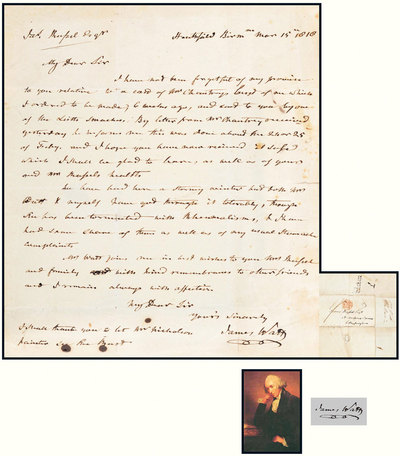 Jas. Russel Esqr. Heathfield Birm. Mar 15th 1818
My Dear Sir
I have not been forgetful of my promise
to you relative to a cast of Mr Chantreys bust of me which
I ordered to be made 6 weeks ago, and sent to you by one
of the Leith Smacks. By letter from Mr Chantrey received
yesterday he informs me this was done about the 24 or 25
of Feby. and I hope you have now received it safe
which I shall be glad to learn, as well as of yours
and Mrs Russels health
We have had here a stormy winter but both Mrs
Watt & myself have got through it tolerably, though
she has been tormented with Rheumatisms, & I have
had some share of them as well as of my usual Stomach
complaints
Mrs Watt joins me in best wishes to you Mrs Russel
and family with kind remembrances to other friends
and I remain always with affection
My Dear Sir
Yours Sincerely
James Watt
I shall thank you to let Mr Nicholson
painter see the Bust
James Watt